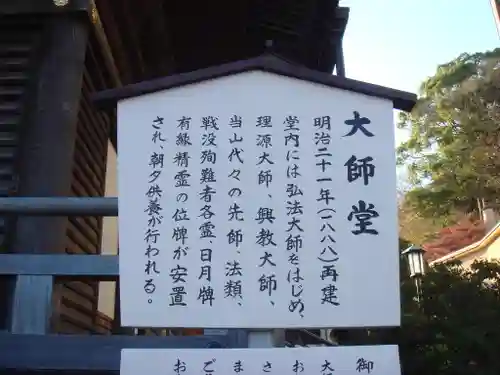 大師堂
明治二十一年(一八八八)再建
堂内には弘法大師をはじめ、
理源大師、興教大師、
当山代々の先師、法類、
戦没殉難者各霊、日月牌
有縁精霊の位牌が安置
され、朝夕供養が行われる。
御
大
お
さ
ま
ご
お